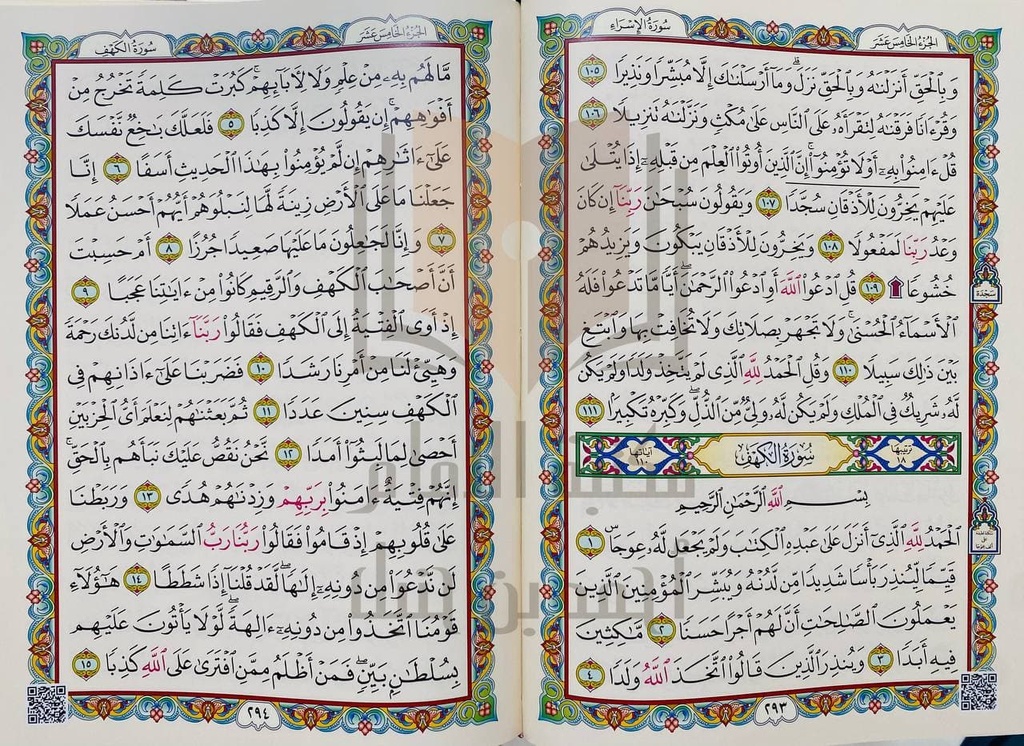 الجزء الخامس عشر
سورة الإسراء
وَبِالْحَقِّ أَنزَلْنَاهُ وَبِالْحَقِّ نَزَلَ ۗ وَمَا أَرْسَلْنَاكَ إِلَّا مُبَشِّرًا وَنَذِيرًا ١٠٥
وَقُرْءَانًا فَرَقْنَاهُ لِتَقْرَأَهُ عَلَى النَّاسِ عَلَىٰ مُكْثٍ وَنَزَّلْنَاهُ تَنزِيلًا ١٠٦
قُلْ ءَامِنُوا بِهِ أَوْ لَا تُؤْمِنُوا ۚ إِنَّ الَّذِينَ أُوتُوا الْعِلْمَ مِن قَبْلِهِ إِذَا يُتْلَىٰ
عَلَيْهِمْ يَخِرُّونَ لِلْأَذْقَانِ سُجَّدًا ١٠٧ وَيَقُولُونَ سُبْحَانَ رَبِّنَا إِن كَانَ
وَعْدُ رَبِّنَا لَمَفْعُولًا ١٠٨ وَيَخِرُّونَ لِلْأَذْقَانِ يَبْكُونَ وَيَزِيدُهُمْ
خُشُوعًا ١٠٩ قُلِ ادْعُوا اللَّهَ أَوِ ادْعُوا الرَّحْمَٰنَ ۖ أَيًّا مَّا تَدْعُوا فَلَهُ
سجدة
الْأَسْمَاءُ الْحُسْنَىٰ ۚ وَلَا تَجْهَرْ بِصَلَاتِكَ وَلَا تُخَافِتْ بِهَا وَابْتَغِ
بَيْنَ ذَٰلِكَ سَبِيلًا ١١٠ وَقُلِ الْحَمْدُ لِلَّهِ الَّذِي لَمْ يَتَّخِذْ وَلَدًا وَلَمْ يَكُن
لَّهُ شَرِيكٌ فِي الْمُلْكِ وَلَمْ يَكُن لَّهُ وَلِيٌّ مِّنَ الذُّلِّ ۖ وَكَبِّرْهُ تَكْبِيرًا ١١١
ترتيبها ١٨ سورة الكهف آياتها ١١٠
بِسْمِ اللَّهِ الرَّحْمَٰنِ الرَّحِيمِ
الْحَمْدُ لِلَّهِ الَّذِي أَنزَلَ عَلَىٰ عَبْدِهِ الْكِتَابَ وَلَمْ يَجْعَل لَّهُ عِوَجًا ۜ ١
قَيِّمًا لِّيُنذِرَ بَأْسًا شَدِيدًا مِّن لَّدُنْهُ وَيُبَشِّرَ الْمُؤْمِنِينَ الَّذِينَ
يَعْمَلُونَ الصَّالِحَاتِ أَنَّ لَهُمْ أَجْرًا حَسَنًا ٢ مَّاكِثِينَ
فِيهِ أَبَدًا ٣ وَيُنذِرَ الَّذِينَ قَالُوا اتَّخَذَ اللَّهُ وَلَدًا ٤
٢٩٣
الجزء الخامس عشر
سورة الكهف
مَّا لَهُم بِهِ مِنْ عِلْمٍ وَلَا لِآبَائِهِمْ ۚ كَبُرَتْ كَلِمَةً تَخْرُجُ مِنْ
أَفْوَاهِهِمْ ۚ إِن يَقُولُونَ إِلَّا كَذِبًا ٥ فَلَعَلَّكَ بَاخِعٌ نَّفْسَكَ
عَلَىٰ ءَاثَارِهِمْ إِن لَّمْ يُؤْمِنُوا بِهَٰذَا الْحَدِيثِ أَسَفًا ٦ إِنَّا
جَعَلْنَا مَا عَلَى الْأَرْضِ زِينَةً لَّهَا لِنَبْلُوَهُمْ أَيُّهُمْ أَحْسَنُ عَمَلًا
٧ وَإِنَّا لَجَاعِلُونَ مَا عَلَيْهَا صَعِيدًا جُرُزًا ٨ أَمْ حَسِبْتَ
أَنَّ أَصْحَابَ الْكَهْفِ وَالرَّقِيمِ كَانُوا مِنْ ءَايَاتِنَا عَجَبًا ٩
إِذْ أَوَى الْفِتْيَةُ إِلَى الْكَهْفِ فَقَالُوا رَبَّنَا ءَاتِنَا مِن لَّدُنكَ رَحْمَةً
وَهَيِّئْ لَنَا مِنْ أَمْرِنَا رَشَدًا ١٠ فَضَرَبْنَا عَلَىٰ ءَاذَانِهِمْ فِي
الْكَهْفِ سِنِينَ عَدَدًا ١١ ثُمَّ بَعَثْنَاهُمْ لِنَعْلَمَ أَيُّ الْحِزْبَيْنِ
أَحْصَىٰ لِمَا لَبِثُوا أَمَدًا ١٢ نَّحْنُ نَقُصُّ عَلَيْكَ نَبَأَهُم بِالْحَقِّ ۚ
إِنَّهُمْ فِتْيَةٌ ءَامَنُوا بِرَبِّهِمْ وَزِدْنَاهُمْ هُدًى ١٣ وَرَبَطْنَا
عَلَىٰ قُلُوبِهِمْ إِذْ قَامُوا فَقَالُوا رَبُّنَا رَبُّ السَّمَاوَاتِ وَالْأَرْضِ
لَن نَّدْعُوَ مِن دُونِهِ إِلَٰهًا ۖ لَّقَدْ قُلْنَا إِذًا شَطَطًا ١٤ هَٰؤُلَاءِ
قَوْمُنَا اتَّخَذُوا مِن دُونِهِ ءَالِهَةً ۖ لَّوْلَا يَأْتُونَ عَلَيْهِم
بِسُلْطَانٍ بَيِّنٍ ۖ فَمَنْ أَظْلَمُ مِمَّنِ افْتَرَىٰ عَلَى اللَّهِ كَذِبًا ١٥
٢٩٤